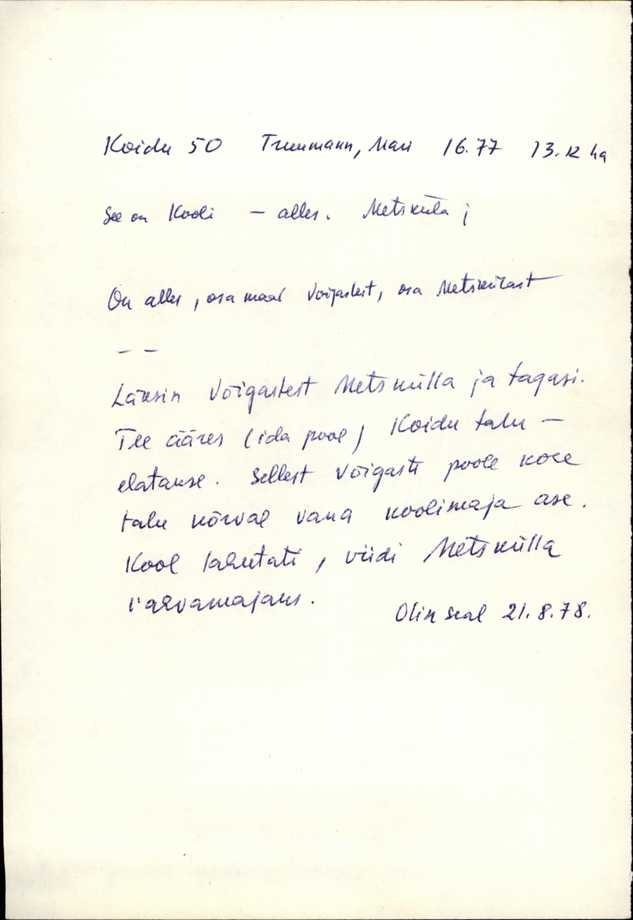 Koidu 50 Truumann, Mari 16.77 13.12 ha
See on Kooli – alles. Metsküla;
On alles, osa maad Võigastest, osa Metskülast
– –
Läksin Võigastest Metskülla ja tagasi.
Tee ääres (ida pool) Koidu talu –
elatakse. Sellest Võigaste poole koce
talu kõrval vana koolimaja ase.
Kool lahutati, viidi Metskülla
rahvamajaks.
Olin seal 21.8.78.